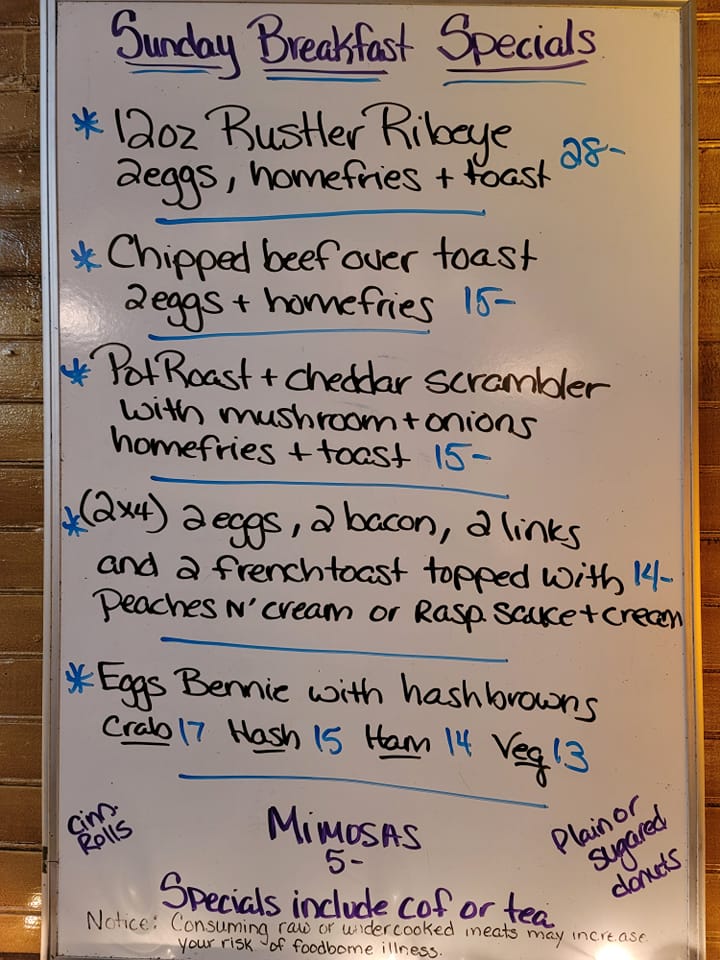 Sunday Breakfast Specials
* 12oz Rustler Ribeye
2eggs, homefries + toast 28-
* Chipped beef over toast
2eggs + homefries 15-
* Pot Roast + cheddar scrambler
with mushroom + onions
homefries + toast 15-
* (2x4) 2 eggs, 2 bacon, 2 links
and 2 frenchtoast topped with 14-
Peaches N' cream or Rasp. Sauce + cream
* Eggs Bennie with hashbrowns
Crab 17 Hash 15 Ham 14 Veg 13
Cinn. Rolls
Mimosas
5-
Plain or
sugared
donuts
Specials include cof or tea
Notice: Consuming raw or undercooked meats may increase
your risk of foodborne illness.